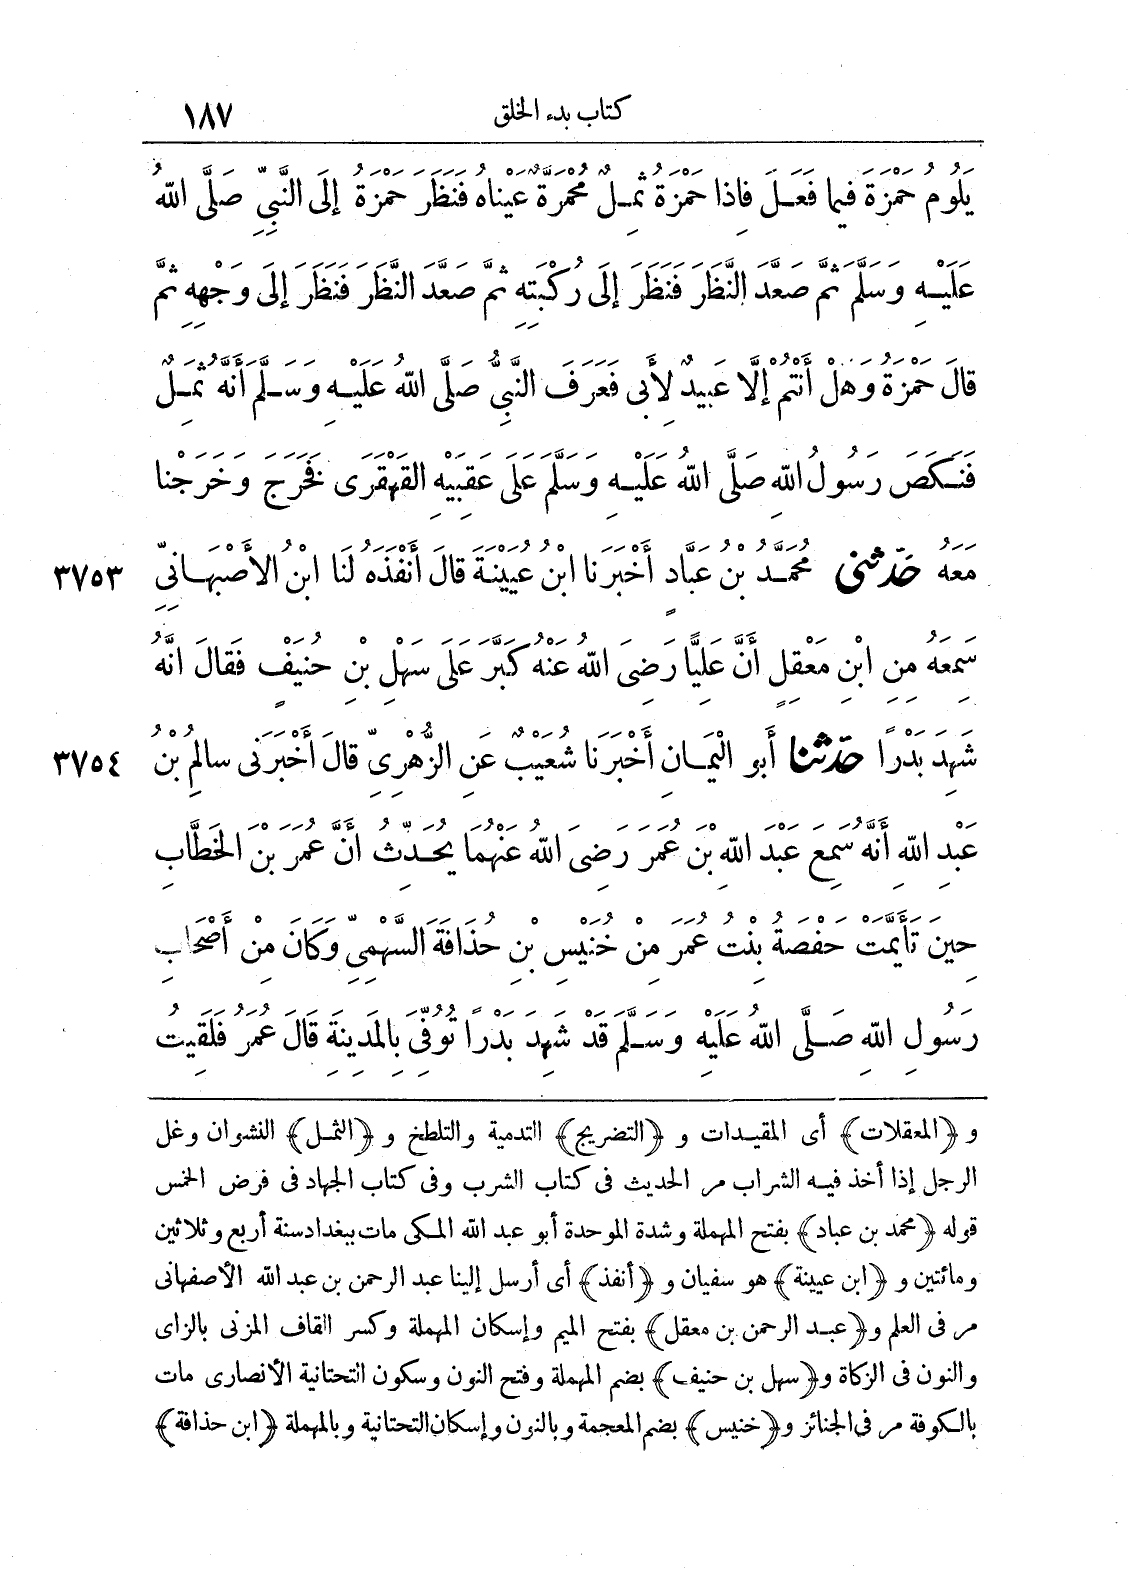 كتاب بدء الخلق ١٨٧
يَلُومُ حَمْزَةَ فِيمَا فَعَلَ فَإِذَا حَمْزَةُ ثَمِلٌ مُحْمَرَّةٌ عَيْنَاهُ فَنَظَرَ حَمْزَةُ إِلَى النَّبِيِّ صَلَّى اللهُ
عَلَيْهِ وَسَلَّمَ ثُمَّ صَعَّدَ النَّظَرَ فَنَظَرَ إِلَى رُكْبَتِهِ ثُمَّ صَعَّدَ النَّظَرَ فَنَظَرَ إِلَى وَجْهِهِ ثُمَّ
قَالَ حَمْزَةُ وَهَلْ أَنْتُمْ إِلَّا عَبِيدٌ لِأَبِى فَعَرَفَ النَّبِيُّ صَلَّى اللهُ عَلَيْهِ وَسَلَّمَ أَنَّهُ ثَمِلٌ
فَنَكَصَ رَسُولُ اللهِ صَلَّى اللهُ عَلَيْهِ وَسَلَّمَ عَلَى عَقِبَيْهِ الْقَهْقَرَى فَخَرَجَ وَخَرَجْنَا
مَعَهُ حَدَّثَنِى مُحَمَّدُ بْنُ عَبَّادٍ أَخْبَرَنَا ابْنُ عُيَيْنَةَ قَالَ أَنْفَذَهُ لَنَا ابْنُ الْأَصْبَهَانِيِّ ٣٧٥٣
سَمِعَهُ مِنِ ابْنِ مَعْقِلٍ أَنَّ عَلِيًّا رَضِىَ اللهُ عَنْهُ كَبَّرَ عَلَى سَهْلِ بْنِ حُنَيْفٍ فَقَالَ انَّهُ
شَهِدَ بَدْرًا حَدَّثَنَا أَبُو الْيَمَانِ أَخْبَرَنَا شُعَيْبٌ عَنِ الزُّهْرِىِّ قَالَ أَخْبَرَنِى سَالِمُ بْنُ ٣٧٥٤
عَبْدِ اللهِ أَنَّهُ سَمِعَ عَبْدَ اللهِ بْنَ عُمَرَ رَضِىَ اللهُ عَنْهُمَا يُحَدِّثُ أَنَّ عُمَرَ بْنَ الْخَطَّابِ
حِينَ تَأَيَّمَتْ حَفْصَةُ بِنْتُ عُمَرَ مِنْ خُنَيْسِ بْنِ حُذَافَةَ السَّهْمِيِّ وَكَانَ مِنْ أَصْحَابِ
رَسُولِ اللهِ صَلَّى اللهُ عَلَيْهِ وَسَلَّمَ قَدْ شَهِدَ بَدْرًا تُوُفِّىَ بِالْمَدِينَةِ قَالَ عُمَرُ فَلَقِيتُ
و ﴿المعقلات﴾ أى المقيدات و ﴿التضريج﴾ التدمية والتلطخ و ﴿الثمل﴾ النشوان وغل
الرجل إذا أخذ فيه الشراب مر الحديث فى كتاب الشرب وفى كتاب الجهاد فى فرض الخمس
قوله ﴿محمد بن عباد﴾ بفتح المهملة وشدة الموحدة أبو عبد الله المكى مات ببغداد سنة أربع وثلاثين
ومائتين و ﴿ابن عيينة﴾ هو سفيان و ﴿أنفذ﴾ أى أرسل إلينا عبد الرحمن بن عبد الله الأصفهانى
مر فى العلم و ﴿عبد الرحمن بن معقل﴾ بفتح الميم وإسكان المهملة وكسر القاف المزنى بالزاى
والنون فى الزكاة و ﴿سهل بن حنيف﴾ بضم المهملة وفتح النون وسكون التحتانية الأنصارى مات
بالكوفة مر فى الجنائز و ﴿خنيس﴾ بضم المعجمة وبالنون وإسكان التحتانية وبالمهملة ﴿ابن حذافة﴾